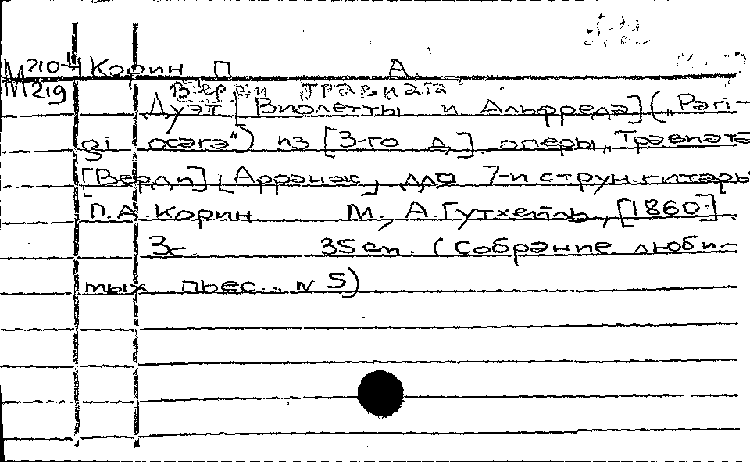 М 210-4 Корин П. А.
М 219 Верди Травиата
Дуэт [Виолетты и Альфреда] („Pari-
gi o cara“) из [3-го д.] оперы „Травиата
[Верди] [Арранж.] для 7-и струн. гитары
П. А. Корин М., А. Гутхейль, [1860.]
3с 35 cm. (Собрание люби-
мых пьес.. N 5)